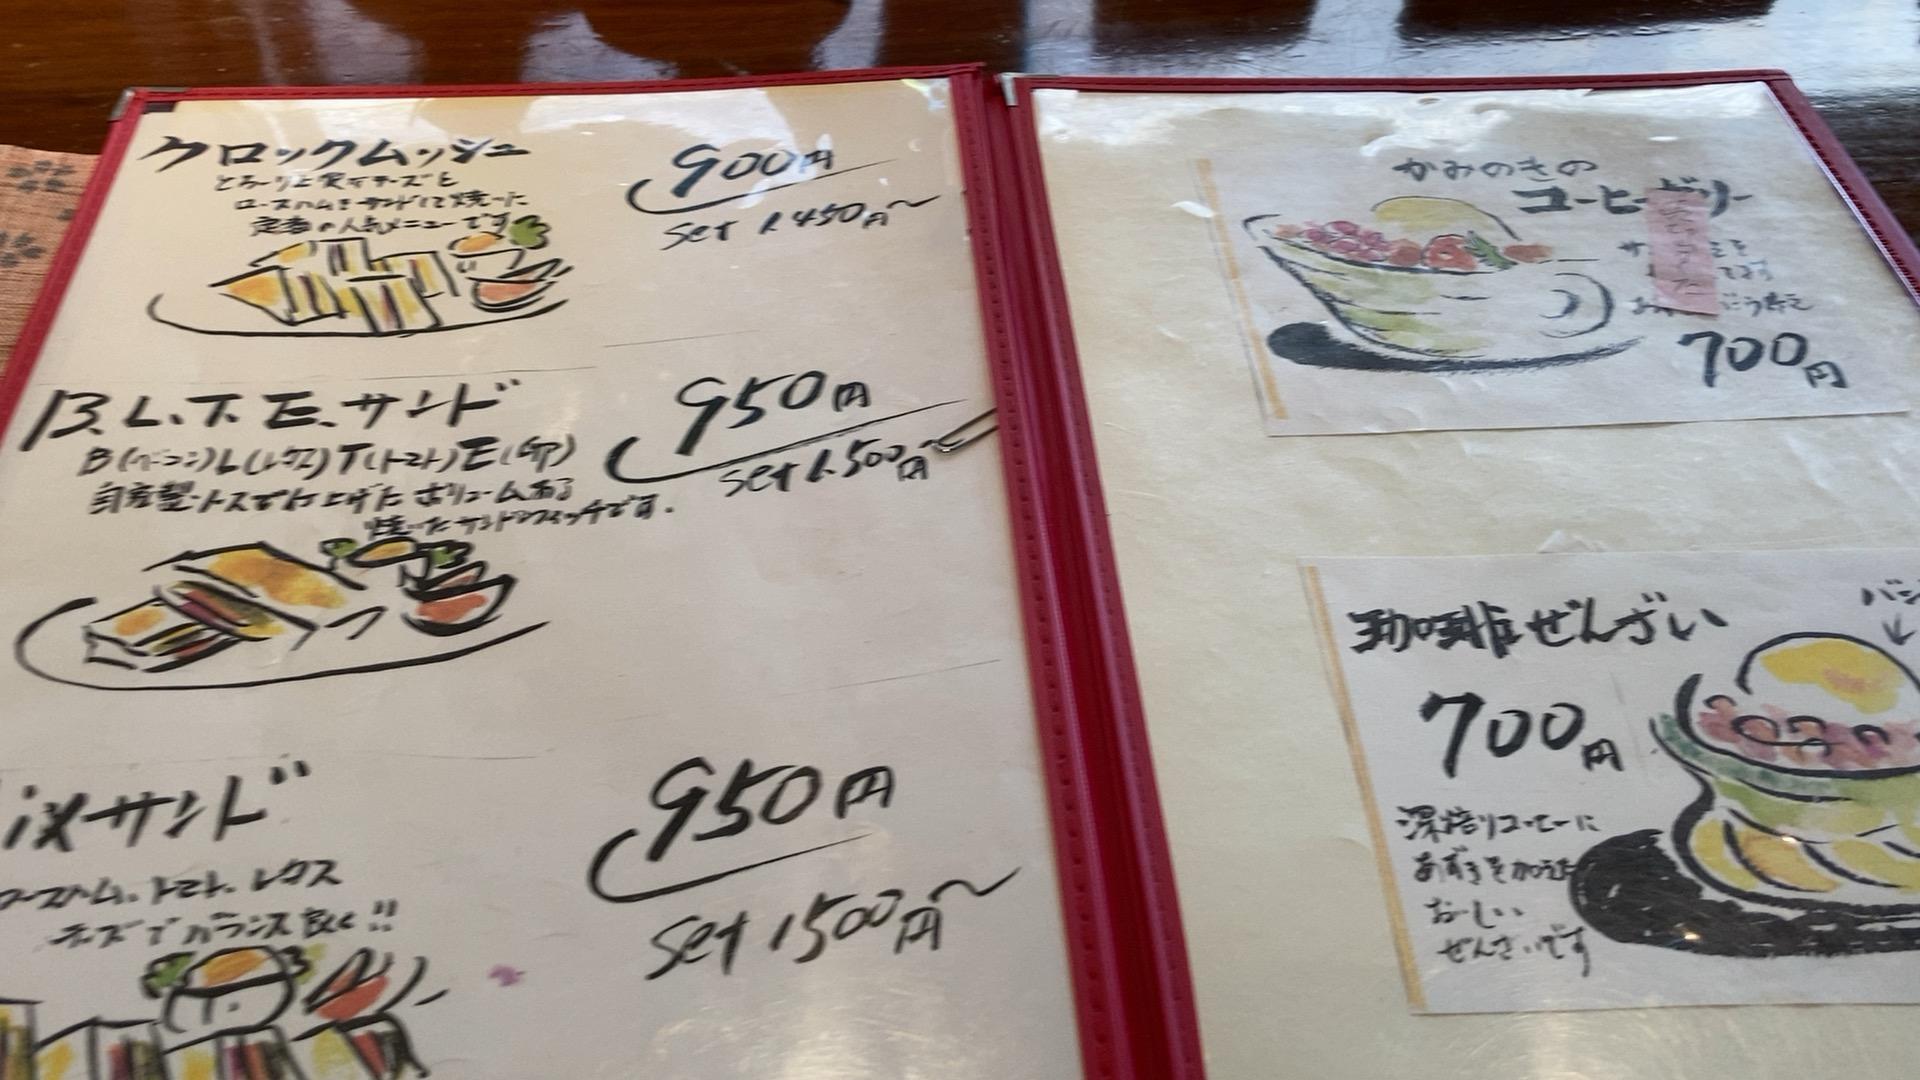 クロックムッシュ
とろーり上質チーズを
ロースハムをサンドして焼いた
定番の人気メニューです
900円
set 1.450円~
B.L.T.E.サンド
B(ベーコン)L(レタス)T(トマト)E(卵)
自家製ソースで仕上げたボリュームある
焼いたサンドウィッチです.
950円
set 1.500円~
ixサンド
ロースハム、トマト、レタス
チーズでバランス良く!!
950円
set 1500円~
かみのきの
コーヒーゼリー
700円
珈琲ぜんざい
700円
深焙りコーヒーに
あずきを加えた
おいしい
ぜんざいです